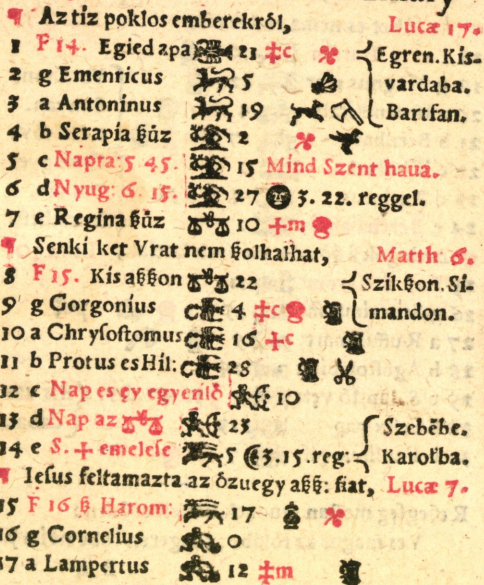 ¶ Az tiz poklos emberekról, Lucæ 17.
1 F 14. Egied apa 21 ‡c Egren. Kis-
2 g Ementicus 5 vardaba.
3 a Antoninus 19 Bartfan.
4 b Serapia ßûz 2
5 c Napra: 5 45. 15 Mind Szent haua.
6 d Nyug: 6. 15. 27 3. 22. reggel.
7 e Regina ßûz 10 ‡m
¶ Senki ket Vrat nem ßolhalhat, Matth 6.
8 F 15. Kis aßßon 22 Szikßon. Si-
9 g Gorgonius 4 ‡c mandon.
10 a Chryſoſtomus 16 ‡c
11 b Protus es Hil: 28
12 c Nap es ey egyenlô 10
13 d Nap az 23 Szebêbe.
14 e S. + emelese 5 3. 15. reg: Karołba.
¶ Ieſus feltamazta az ôzuegy aßß: fiat, Lucæ 7.
15 F 16 ß Harom: 17
16 g Cornelius 0
17 a Lampertus 12 ‡m